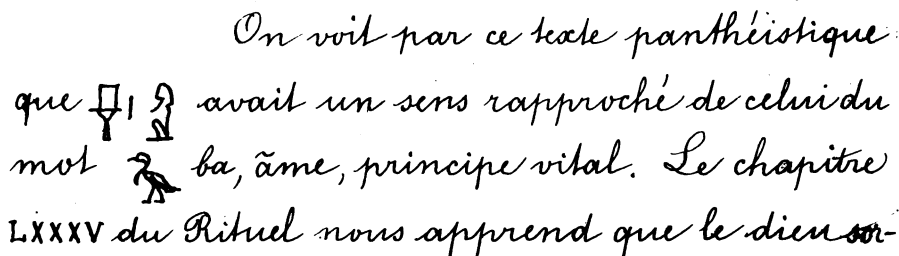 On voit par ce texte panthéistique
que 𓎸𓏤𓀭 avait un sens rapproché de celui du
mot 𓅡 ba, ãme, principe vital. Le chapitre
LXXXV du Rituel nous apprend que le dieu sor-